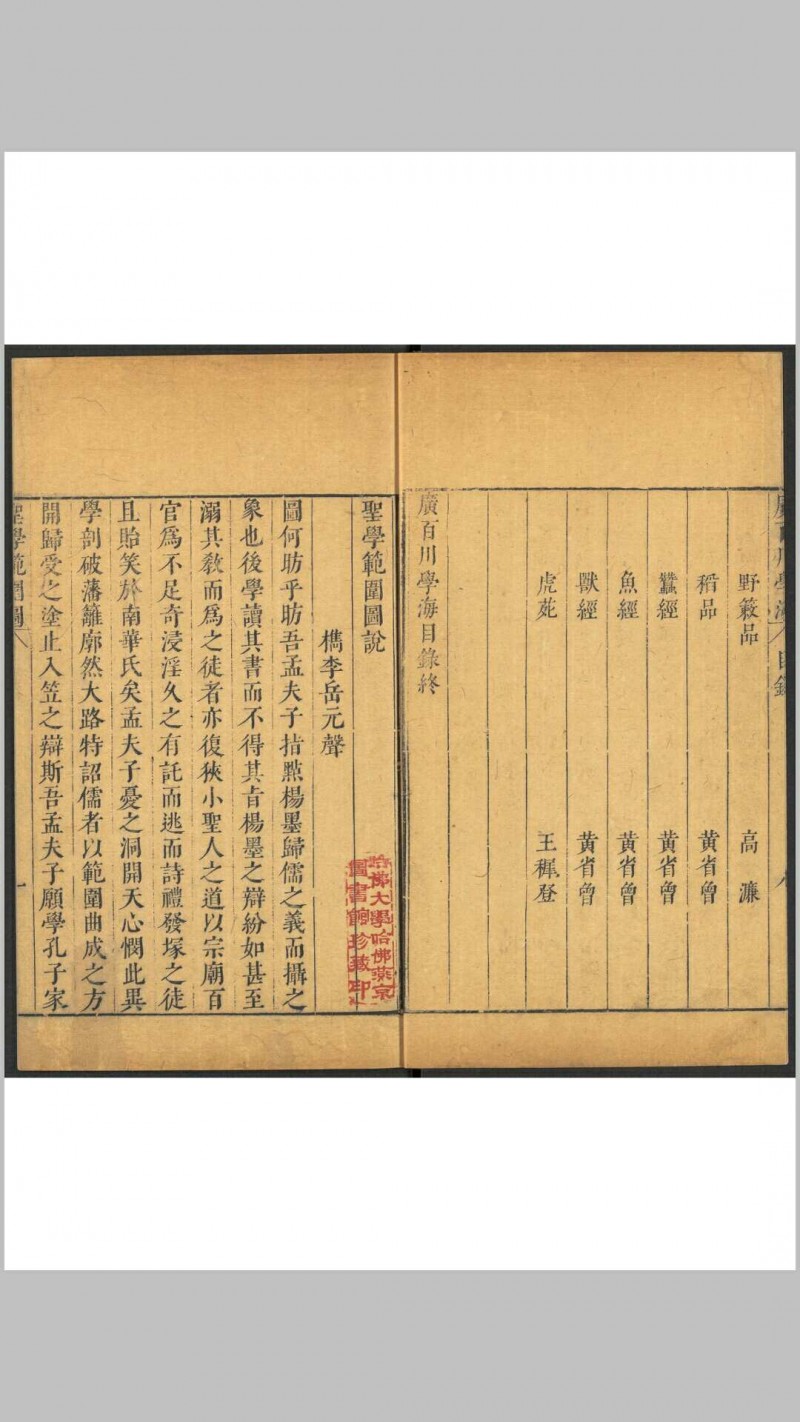 野蔌品　高濂
稻品　黃省曾
蠶經　黃省曾
魚經　黃省曾
獸經　黃省曾
虎苑　王穉登
廣百川學海目錄終
聖學範圍圖說
檇李岳元聲
圖何昉乎昉吾孟夫子拈㸃楊墨歸儒之義而攝之
象也後學讀其書而不得其㫖楊墨之辯紛如甚至
溺其敎而爲之徒者亦復狹小聖人之道以宗廟百
官爲不足奇浸淫久之有託而逃而詩禮發塚之徒
且貽笑於南華氏矣孟夫子憂之洞開天心憫此異
學剖破藩籬廓然大路特詔儒者以範圍曲成之方
開歸受之塗止入笠之辯斯吾孟夫子願學孔子家
聖學範圍圖
一
哈佛大學哈佛燕京
圖書館珍藏印